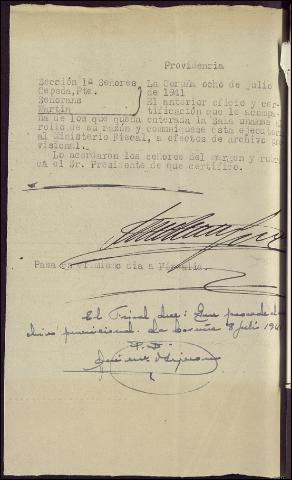 Providencia
Sección 1ª Señores
Cepeda, Pte.
Señorans
Martin
La Coruña ocho de julio
de 1941
El anterior oficio y cer-
tificación que le acompa-
ña de los que queda enterada la Sala unanse al
rollo de su razón y comuniquese esta ejecutoria
al Ministerio Fiscal, a efectos de archivo pro
visional.
Lo acordaron los señores del margen y rubri
ca el Sr. Presidente de que certifico.
Pasa en el mismo dia a Fiscalia.
El Fiscal dice: Que procede el
provisional. La Coruña 8 julio 194
P. D.